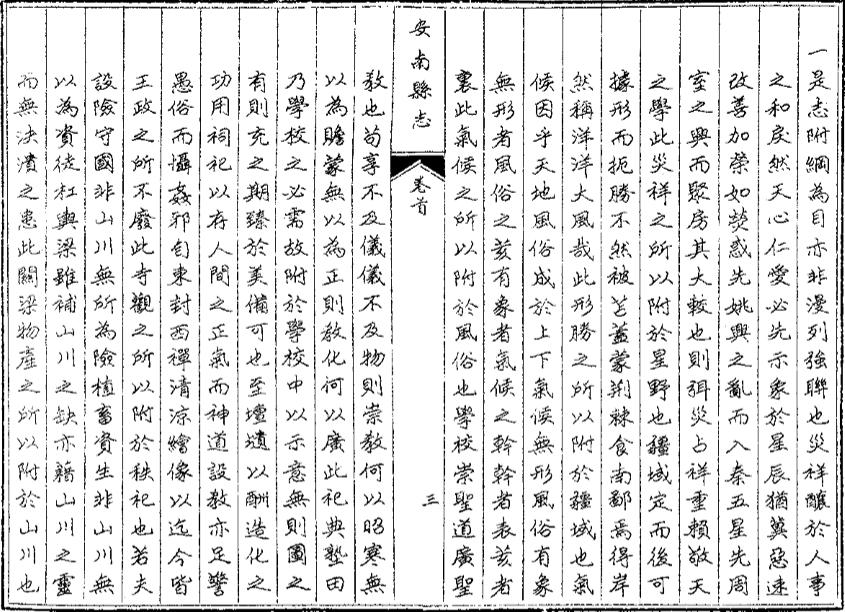 一是志附綱為目亦非漫列強聯也災祥釀於人事
之和戾然天心仁愛必先示象於星辰猶冀惡速
改善加榮如熒惑先姚興之亂而入秦五星先周
室之興而聚房其大較也則弭災占祥重賴敬天
之學此災祥之所以附於星野也疆域定而後可
據形而扼勝不然被苫蓋蒙荆棘食南鄙焉得岸
然稱洋洋大風哉此形勝之所以附於疆域也氣
候因乎天地風俗成於上下氣候無形風俗有象
無形者風俗之荄有象者氣候之幹幹者表荄者
裏此氣候之所以附於風俗也學校崇聖道廣聖
安南縣志
卷首
三
教也苟享不及儀儀不及物則崇教何以昭寒無
以為贍蒙無以為正則教化何以廣此祀典塾田
乃學校之必需故附於學校中以示意無則圖之
有則充之期臻於美備可也至壇壝以酬造化之
功用祠祀以存人間之正氣而神道設教亦足警
愚俗而懾姦邪匄東封西禪清涼繪像以迄今皆
王政之所不廢此寺觀之所以附於秩祀也若夫
設險守國非山川無所為險植畜資生非山川無
以為資徒杠輿梁雖補山川之缺亦藉山川之靈
而無決潰之患此關梁物產之所以附於山川也